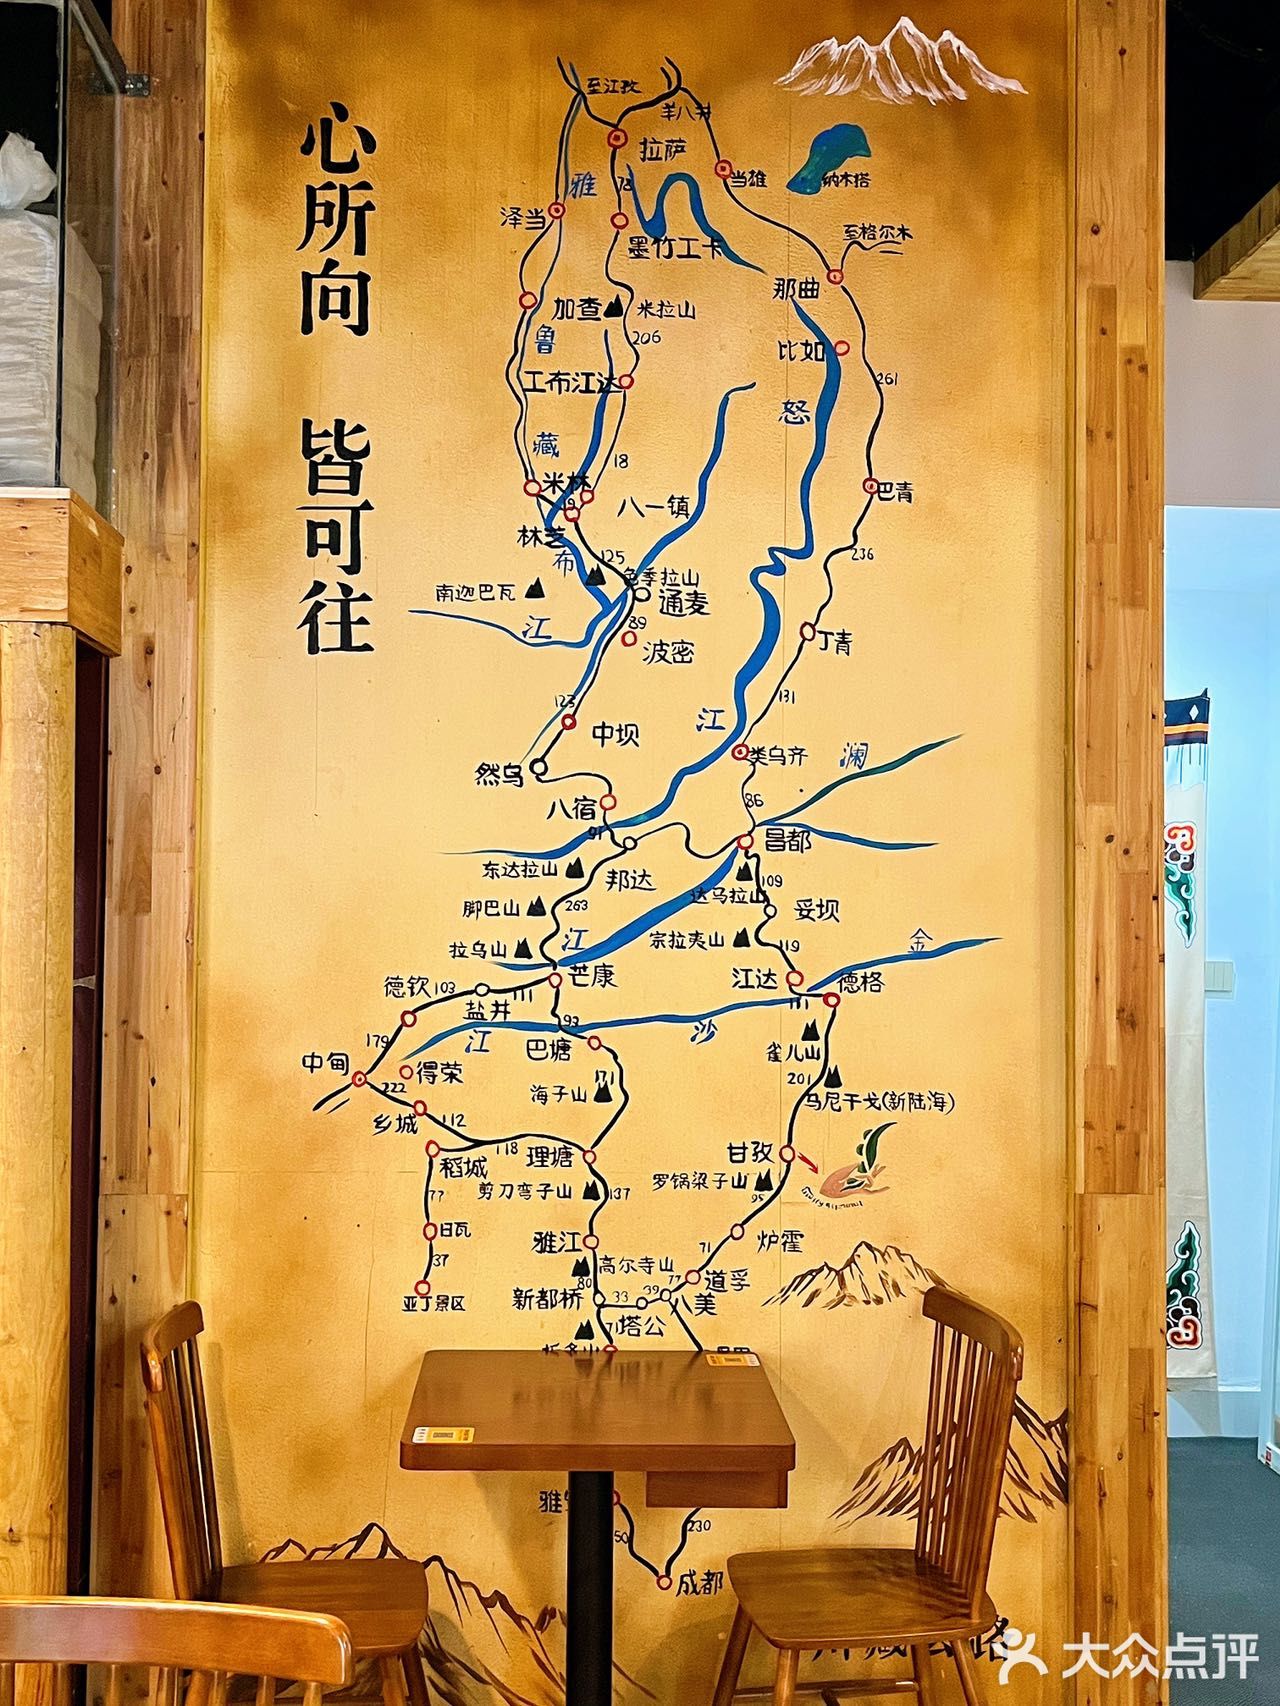 心所向 皆可往
至江孜
羊八井
拉萨
当雄
纳木塔
雅
78
泽当
墨竹工卡
至格尔木
那曲
加查
米拉山
鲁
206
比如
工布江达
261
怒
藏
18
米林
19
巴青
八一镇
林芝
布
125
236
色季拉山
南迦巴瓦
通麦
江
89
丁青
波密
131
123
江
中坝
类乌齐
澜
然乌
八宿
86
91
昌都
东达拉山
邦达
达马拉山
109
脚巴山
263
妥坝
江
宗拉夷山
金
拉乌山
119
芒康
江达
德格
德钦
103
111
盐井
111
93
沙
江
179
巴塘
雀儿山
中甸
得荣
171
201
222
海子山
马尼干戈(新陆海)
乡城
112
118
理塘
甘孜
稻城
剪刀弯子山
137
罗锅梁子山
95
77
日瓦
雅江
炉霍
37
高尔寺山
71
80
77
道孚
亚丁景区
新都桥
33
39
八美
塔公
71
雅
50
230
成都
大众点评